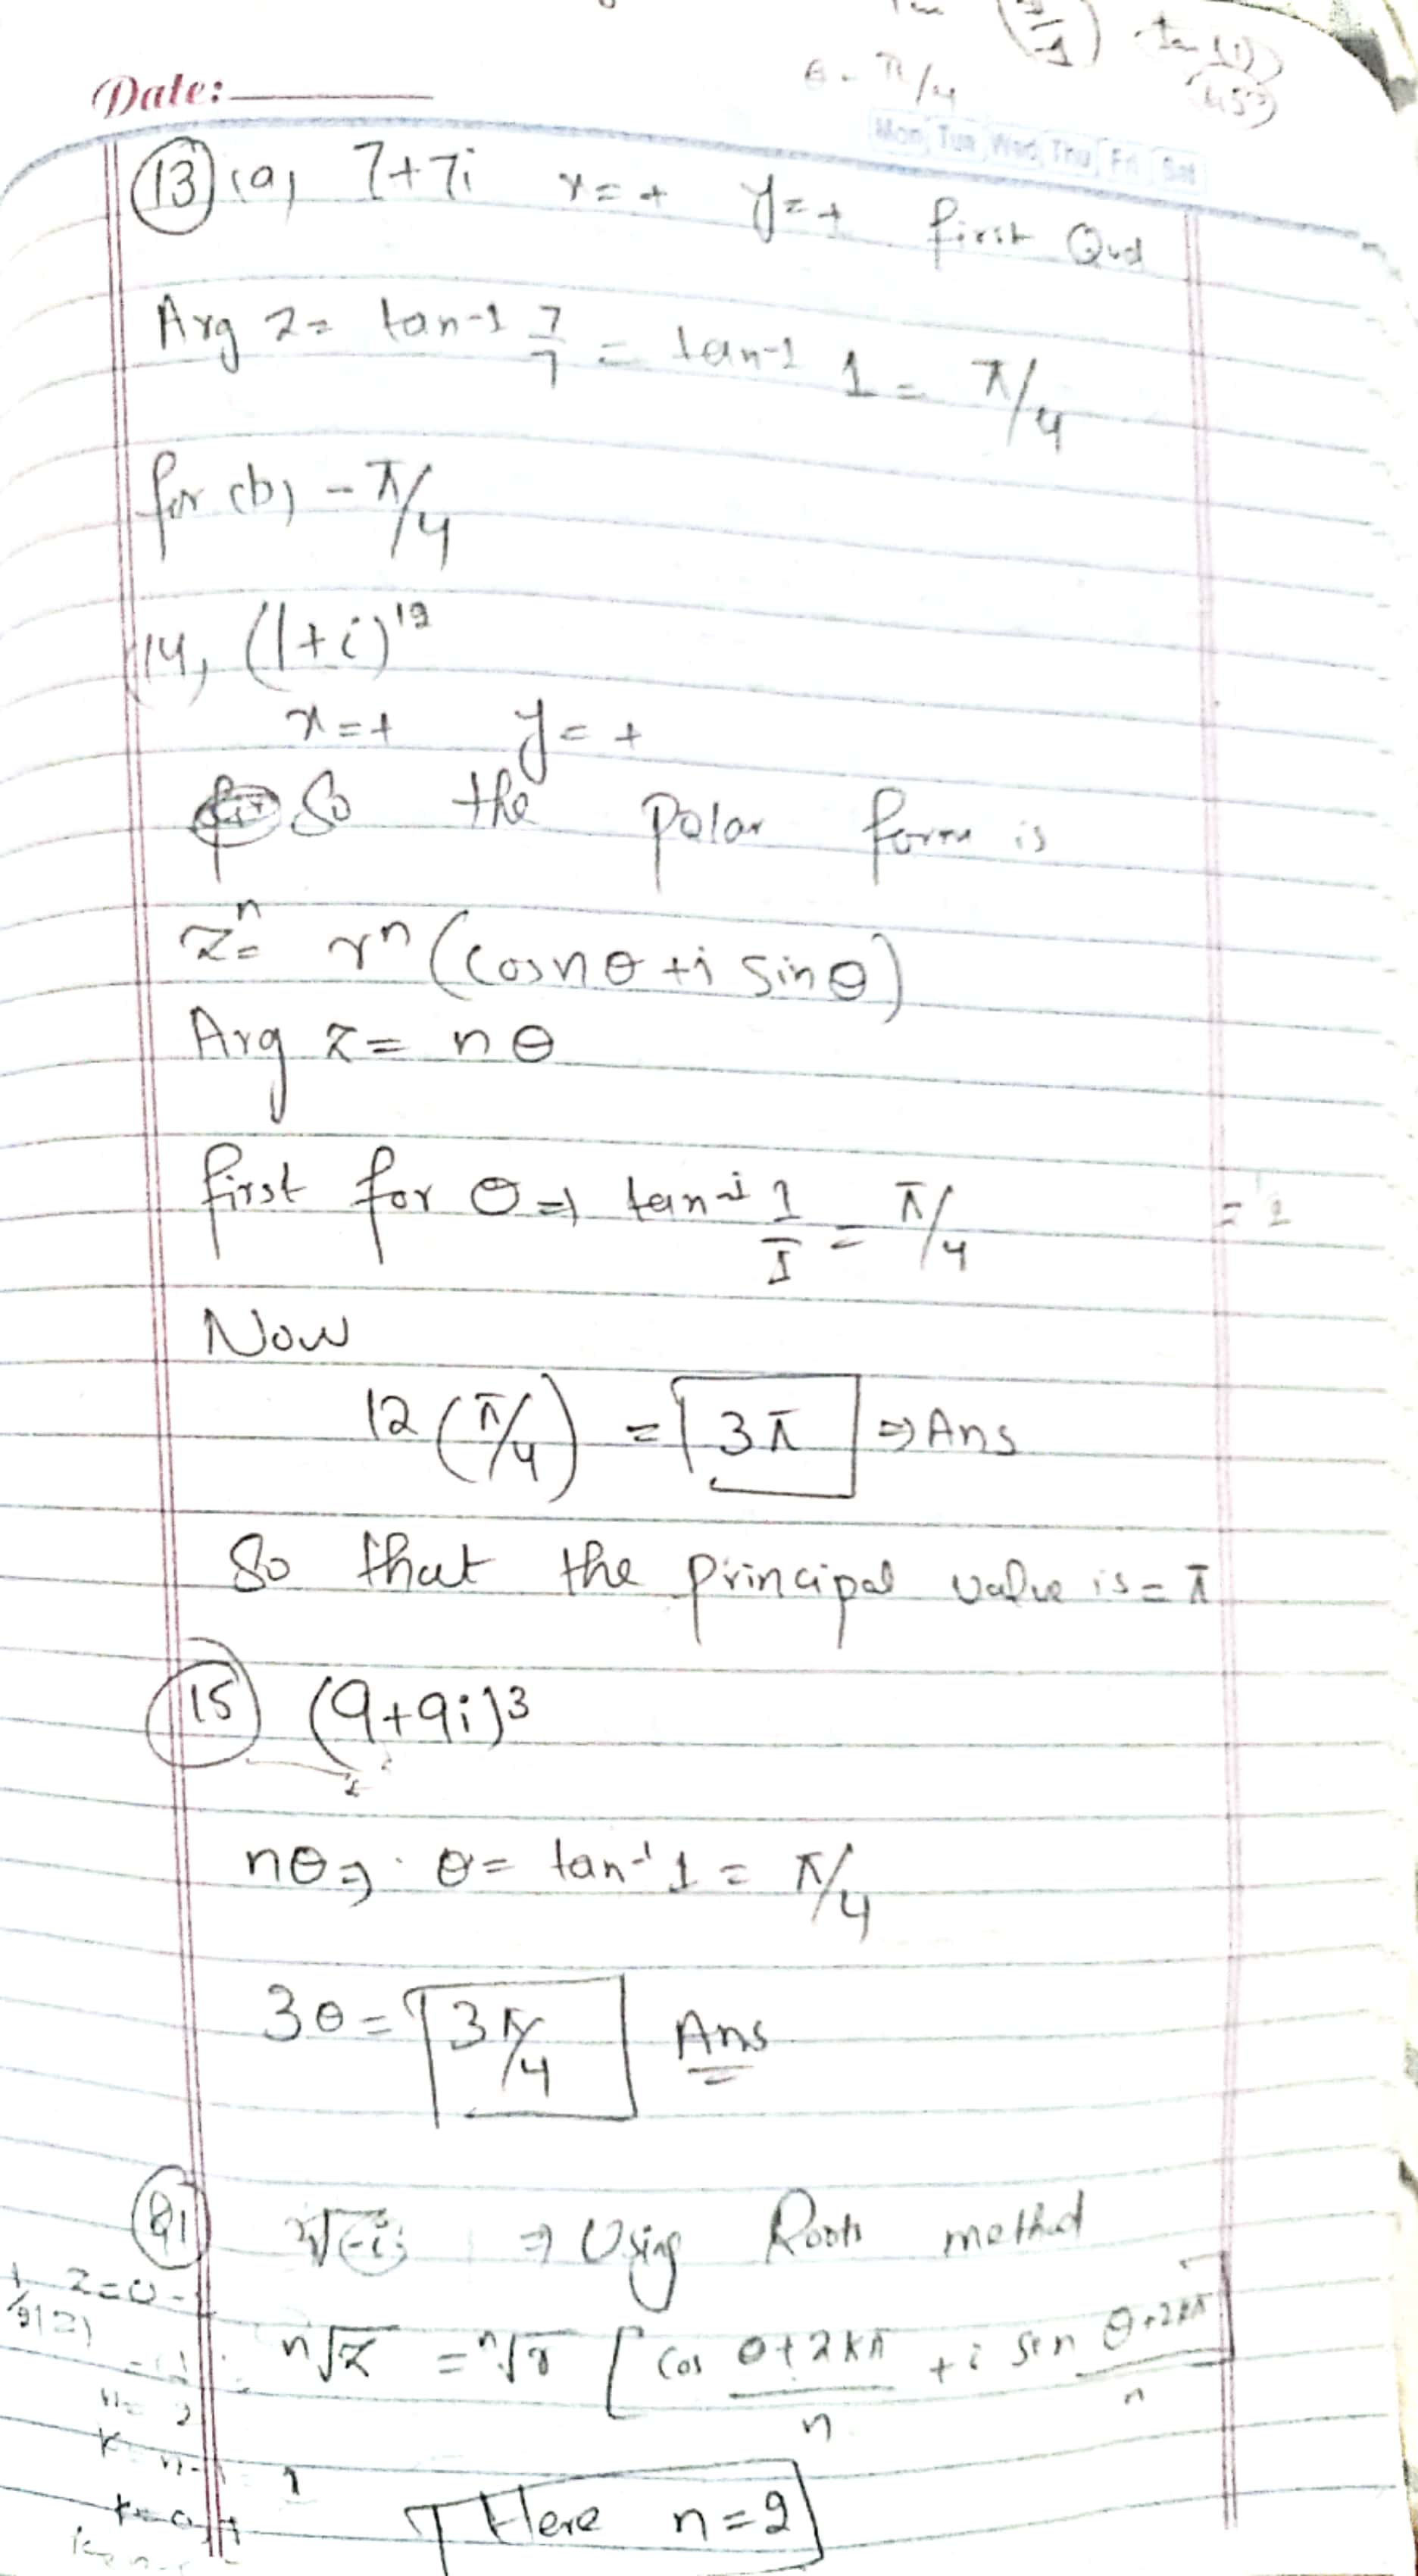 θ = π/4
Date:
Mon Tue Wed Thu Fri Sat
(13) (a) 7+7i x=+ y=+ first Qud
Arg z= tan-1 7/7 = tan-1 1 = π/4
for (b) -π/4
14, (1+i)12
x=+ y=+
So the polar form is
zn= rn (cosnθ +i sinθ)
Arg z= nθ
first for θ⇒ tan-1 1/1 = π/4
Now
12 (π/4) = 3π ⇒ Ans
So that the principal value is = π
(15) (9+9i)3
nθ⇒ θ= tan-1 1 = π/4
3θ= 3π/4 Ans
⇒ Using Roots method
n√z = n√r [cos θ+2kπ/n + i sin θ+2kπ/n]
Here n=2